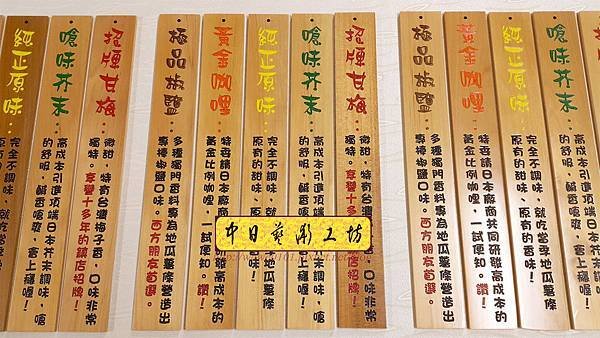 純正原味：
完全不調味，就吃當季地瓜薯條
嗆味芥末：
高成本引進頂端日本芥末調味，嗆
的舒服，鹹香，會上癮喔！
招牌甘梅：
微甜，特有台灣梅子香，口味非常
獨特。享譽十多年的鎮店招牌！
極品椒鹽：
多種獨門香料專為地瓜薯條營造出
椒鹽口味。西方朋友首選。
黃金咖哩：
特委請日本廠商共同研發高成本的
黃金比例咖哩，一試便知。讚！
純正原味：
完全不調味，就吃當季地瓜薯條
原有的甜味、原有的香味！
嗆味芥末：
高成本引進頂端日本芥末調味，嗆
的舒服，鹹香，會上癮喔！
招牌甘梅：
微甜，特有台灣梅子香，口味非常
獨特。享譽十多年的鎮店招牌！
極品椒鹽：
多種獨門香料專為地瓜薯條營造出
椒鹽口味。西方朋友首選。
黃金咖哩：
特委請日本廠商共同研發高成本的
黃金比例咖哩，一試便知。讚！
純正原味：
完全不調味，就吃當季地瓜薯條
原有的甜味、原有的香味！
嗆味芥末
高成本引進頂端日本
的舒服，鹹香
中日藝術工坊